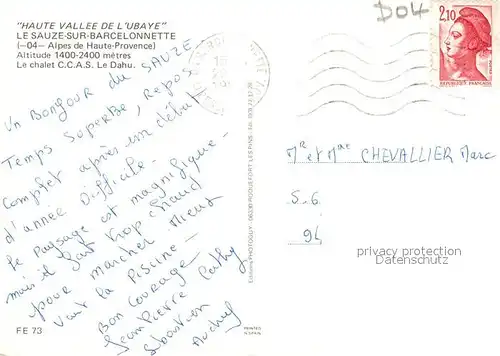 "HAUTE VALLEE DE L'UBAYE"
LE SAUZE-SUR-BARCELONNETTE
(—04— Alpes de Haute-Provence)
Altitude 1400-2400 mètres
Le chalet C.C.A.S. Le Dahu.
Un Bonjour du SAUZE—
Temps superbe, Repos
complet après un début
d'année difficile—
le paysage est magnifique—
mais il fait trop chaud
pour marcher Mieux
vaut la piscine—
Bon courage
Jean Pierre Cathy
Sébastien Audrey
FE 73
Editions PHOTOGUY - 06330 ROQUEFORT LES PINS
PRINTED
D04
2,10
REPUBLIQUE FRANÇAISE
Mr et Mme CHEVALLIER Marc
S.G.
94
privacy protection
Datenschutz